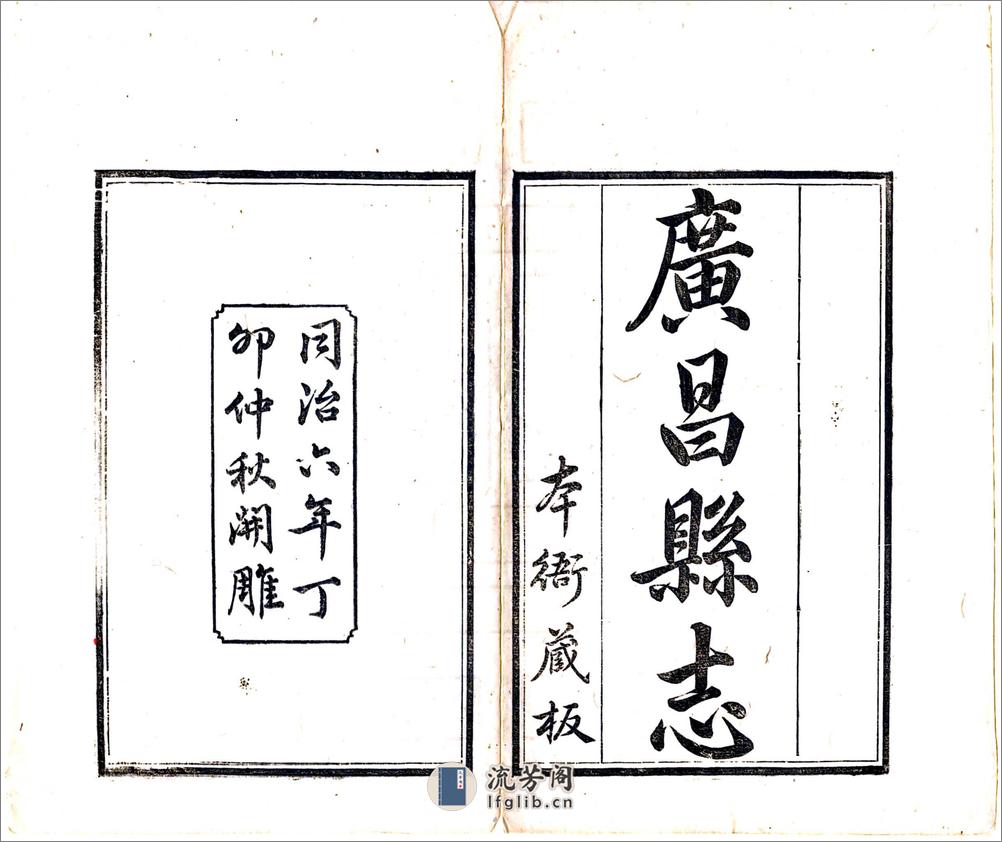 廣昌縣志
本衙藏板
同治六年丁
卯仲秋開雕
流芳阁
lfglib.cn